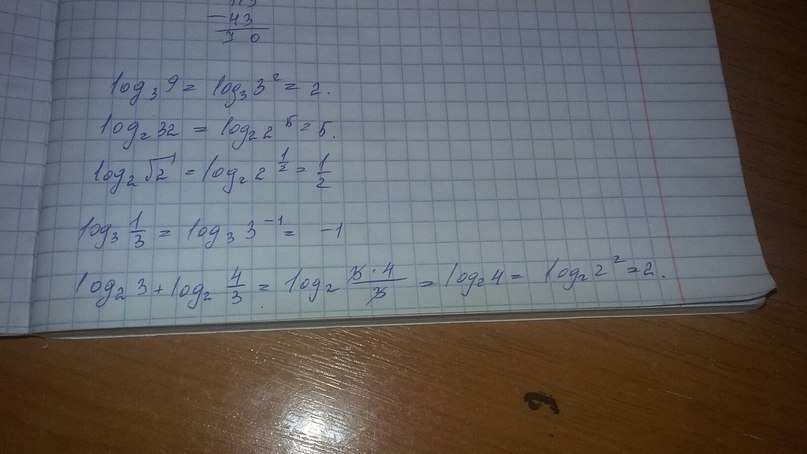 -43
70
log₃ 9 = log₃ 3² = 2.
log₂ 32 = log₂ 2⁵ = 5.
log₂ √2 = log₂ 2^(1/2) = 1/2
log₃ 1/3 = log₃ 3⁻¹ = -1
log₂ 3 + log₂ 4/3 = log₂ (3·4)/3 = log₂ 4 = log₂ 2² = 2.